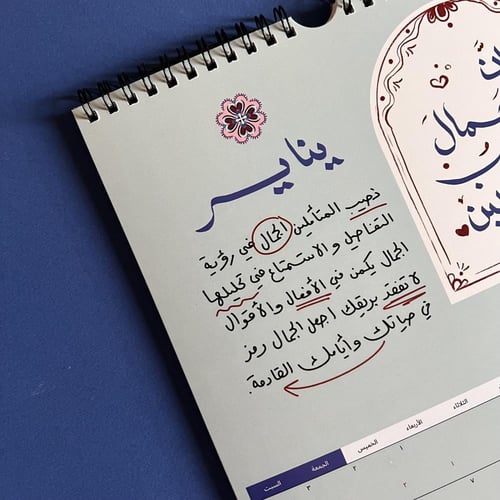 يناير
نصيب المتأملين الجمال في رؤية
التفاصيل والاستمتاع في تحليلها
الجمال يكمن في الأفعال والأقوال
لا تفقد بريقك اجعل الجمال رمز
في حياتك وأيامك القادمة.
الثلاثاء الأربعاء الخميس الجمعة السبت
١ ٢ ٣